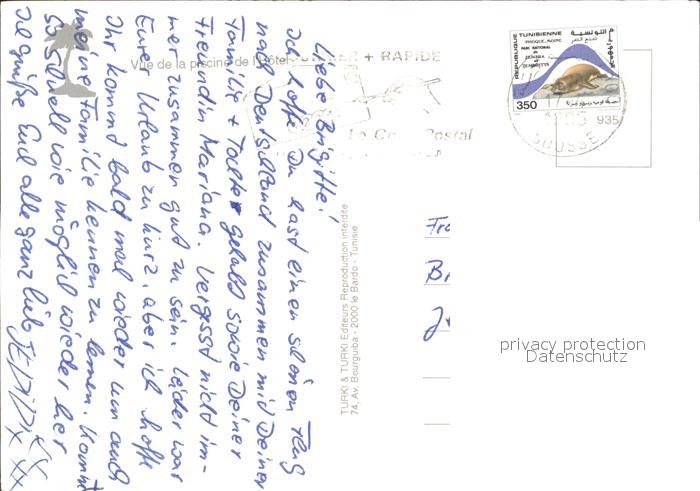 Vue de la piscine de l'Hôtel
+ RAPIDE
Le Co Postal
REPUBLIQUE TUNISIENNE
PHOQUE MOINE
PARC NATIONAL
DE ZEMBRA
ET ZEMBRETTA
350
935
SOUSSE
TURKI & TURKI Editeurs Reproduction interdite
74, Av. Bourguiba - 2000 le Bardo - Tunisie
Liebe Brigitte!
Ich hoffe Du hast einen schönen Flug
nach Deutschland zusammen mit Deiner
Familie + Tochter gehabt sowie Deiner
Freundin Mariana. Vergesst nicht im-
mer zusammen gut zu sein. Leider war
Eure Urlaub zu kurz, aber ich hoffe
Ihr kommt bald mal wieder um auch
meine Familie kennen zu lernen. Kommt
so schnell wie möglich wieder her
Ich grüße Euch alle ganz lieb JEDIDI XXXX
Fra
Br
privacy protection
Datenschutz